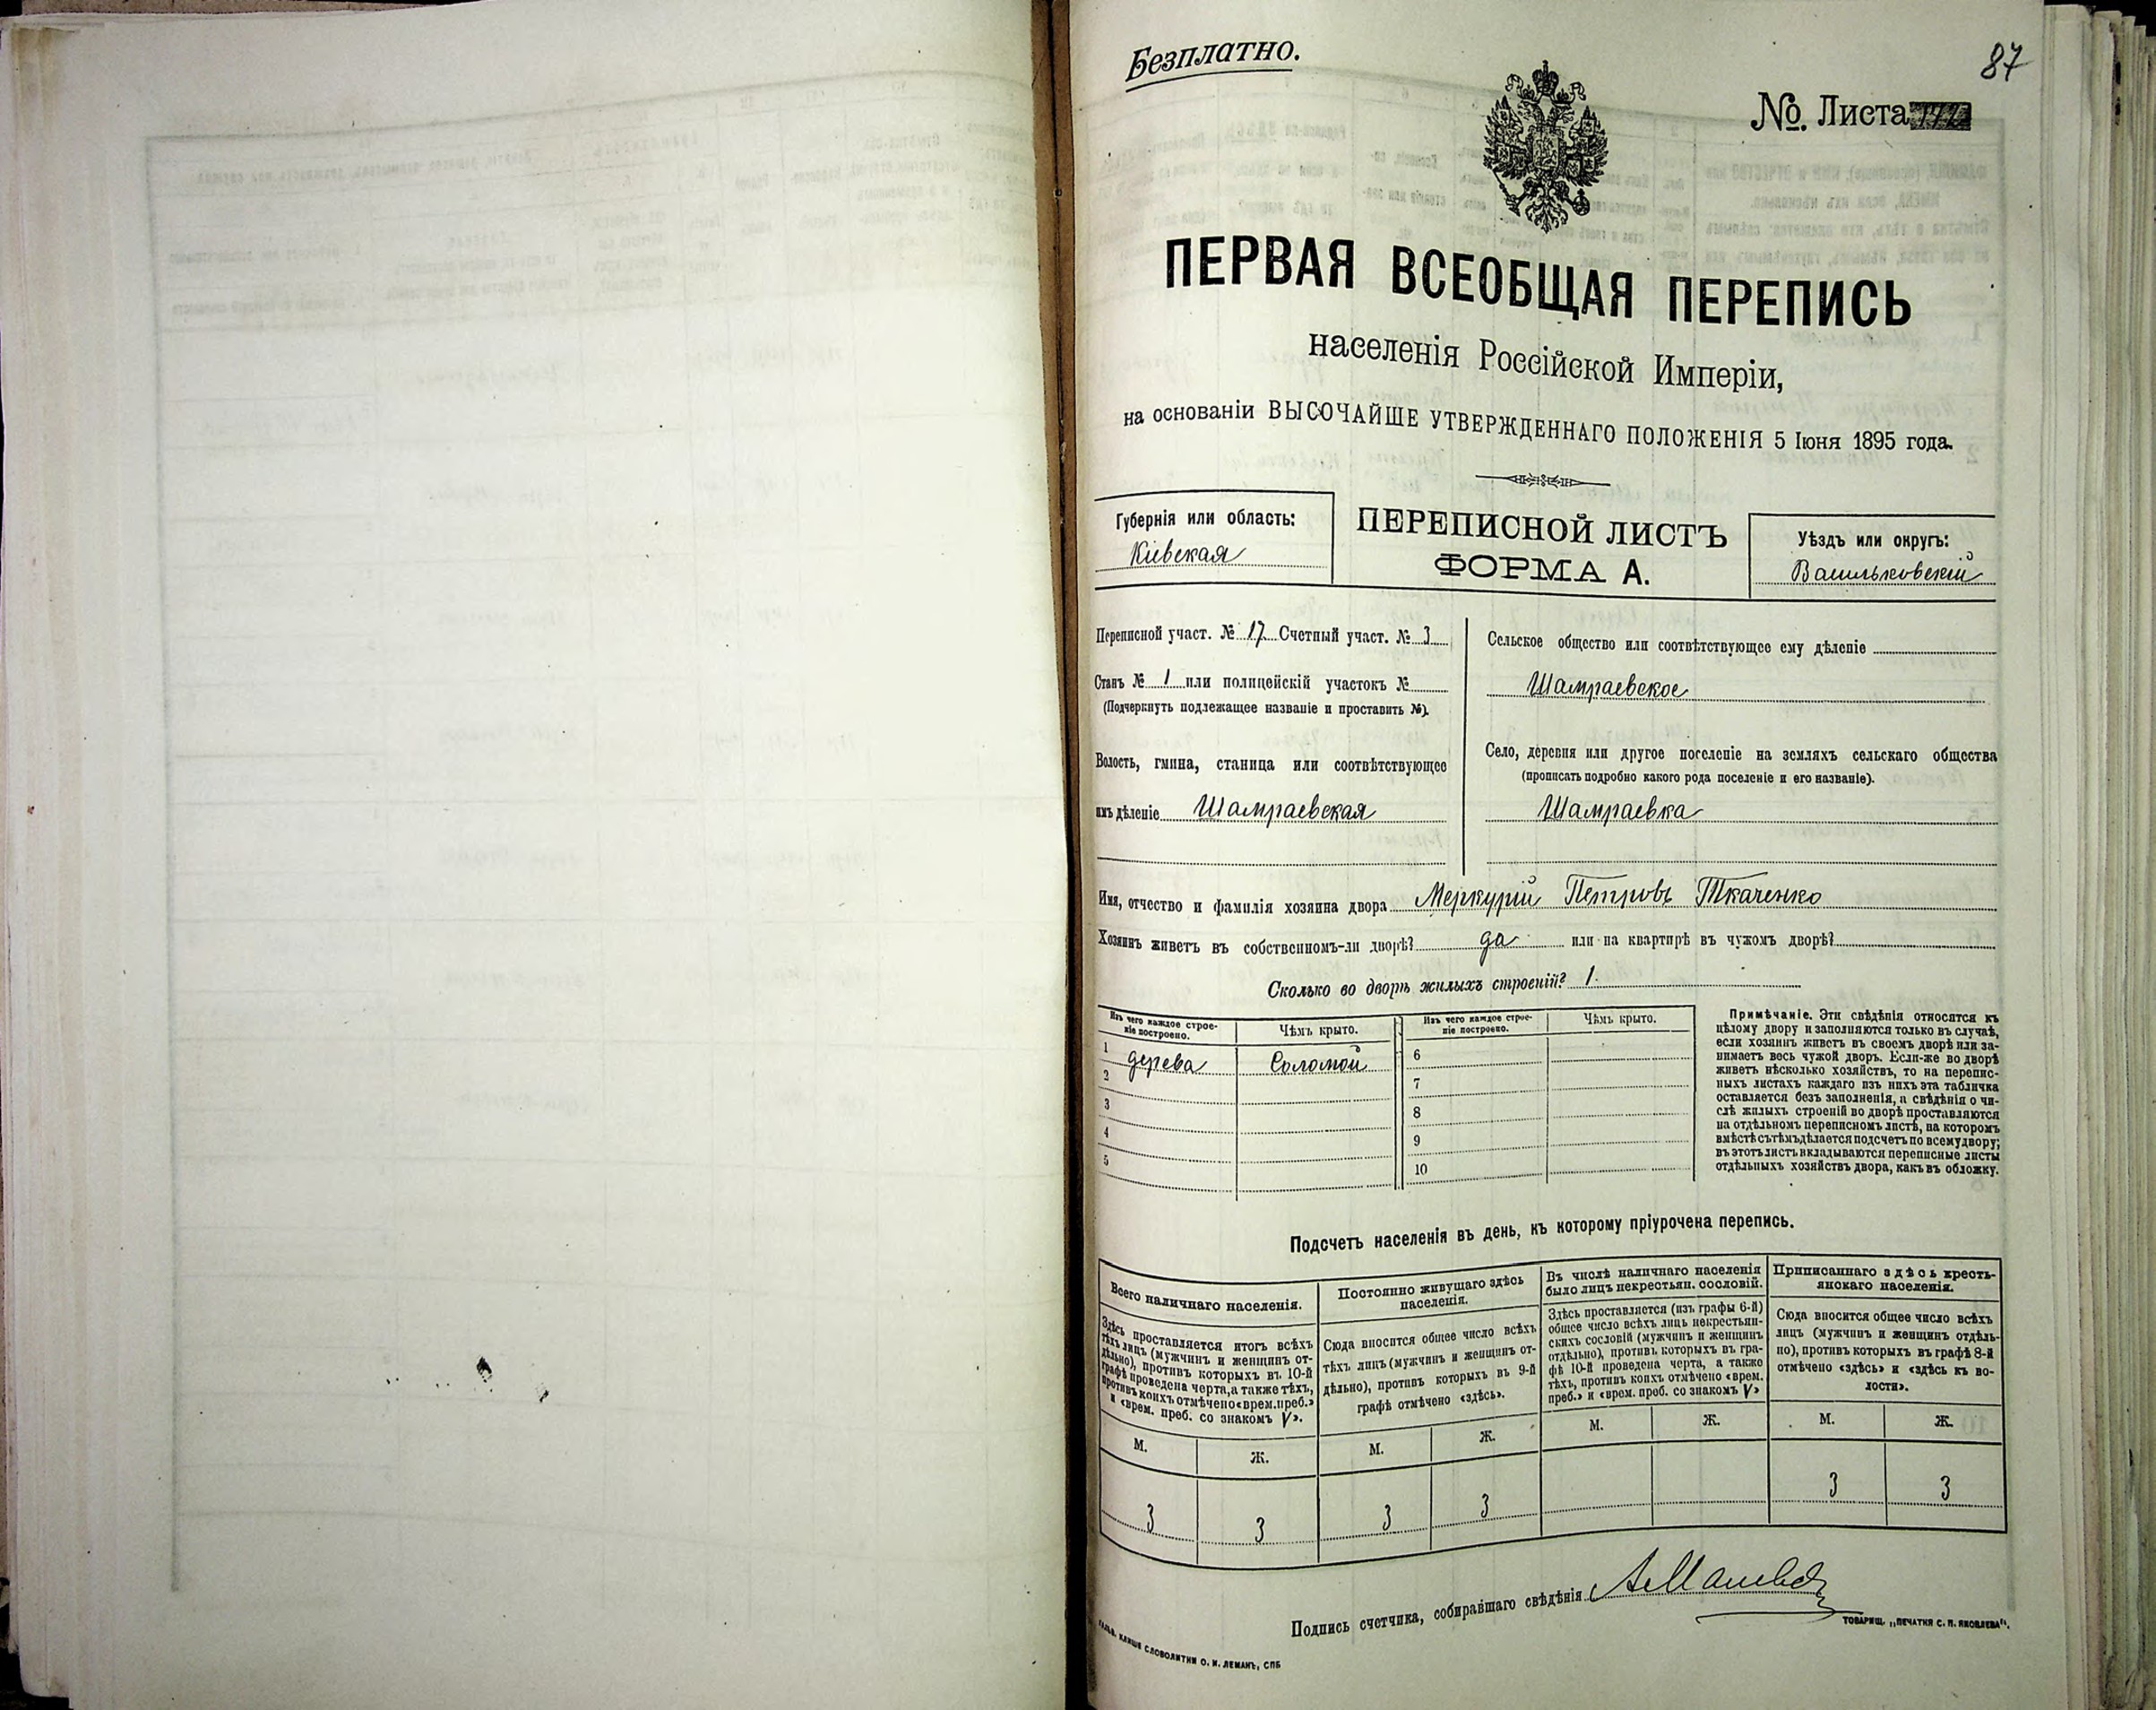 Безплатно.
87
№. Листа
ПЕРВАЯ ВСЕОБЩАЯ ПЕРЕПИСЬ
населенія Россійской Имперіи,
на основаніи ВЫСОЧАЙШЕ УТВЕРЖДЕННАГО ПОЛОЖЕНІЯ 5 Іюня 1895 года.
Губернія или область:
Кіевская
ПЕРЕПИСНОЙ ЛИСТЪ
ФОРМА А.
Уѣздъ или округъ:
Васильковскій
Переписной участ. № 17 Счетный участ. № 3
Станъ № 1 или полицейскій участокъ №
(Подчеркнуть подлежащее названіе и проставить №).
Волость, гмина, станица или соотвѣтствующее
имъ дѣленіе Шамраевская
Сельское общество или соотвѣтствующее ему дѣленіе
Шамраевское
Село, деревня или другое поселеніе на земляхъ сельскаго общества
(прописать подробно какого рода поселеніе и его названіе).
Шамраевка
Имя, отчество и фамилія хозяина двора Меркурій Петровъ Ткаченко
Хозяинъ живетъ въ собственномъ-ли дворѣ? да или на квартирѣ въ чужомъ дворѣ?
Сколько во дворѣ жилыхъ строеній? 1.
Изъ чего каждое строе-
ніе построено.
Чѣмъ крыто.
1 дерева Соломой
2
3
4
5
Изъ чего каждое строе-
ніе построено.
Чѣмъ крыто.
6
7
8
9
10
Примѣчаніе. Эти свѣдѣнія относятся къ
цѣлому двору и заполняются только въ случаѣ,
если хозяинъ живетъ въ своемъ дворѣ или за-
нимаетъ весь чужой дворъ. Если-же во дворѣ
живетъ нѣсколько хозяйствъ, то на перепис-
ныхъ листахъ каждаго изъ нихъ эта табличка
оставляется безъ заполненія, а свѣдѣнія о чи-
слѣ жилыхъ строеній во дворѣ проставляются
на отдѣльномъ переписномъ листѣ, на которомъ
вмѣстѣ съ тѣмъ дѣлается подсчетъ по всему двору;
въ этотъ листъ вкладываются переписные листы
отдѣльныхъ хозяйствъ двора, какъ въ обложку.
Подсчетъ населенія въ день, къ которому пріурочена перепись.
Всего наличнаго населенія.
Здѣсь проставляется итогъ всѣхъ
тѣхъ лицъ (мужчинъ и женщинъ от-
дѣльно), противъ которыхъ въ 10-й
графѣ проведена черта, а также тѣхъ,
противъ коихъ отмѣчено «врем. преб.»
и «врем. преб. со знакомъ V».
М. Ж.
3 3
Постоянно живущаго здѣсь
населенія.
Сюда вносится общее число всѣхъ
тѣхъ лицъ (мужчинъ и женщинъ от-
дѣльно), противъ которыхъ въ 9-й
графѣ отмѣчено «здѣсь».
М. Ж.
3 3
Въ числѣ наличнаго населенія
было лицъ некрестьян. сословій.
Здѣсь проставляется (изъ графы 6-й)
общее число всѣхъ лицъ некрестьян-
скихъ сословій (мужчинъ и женщинъ
отдѣльно), противъ которыхъ въ гра-
фѣ 10-й проведена черта, а также
тѣхъ, противъ коихъ отмѣчено «врем.
преб.» и «врем. преб. со знакомъ V»
М. Ж.
Приписаннаго здѣсь кресть-
янскаго населенія.
Сюда вносится общее число всѣхъ
лицъ (мужчинъ и женщинъ отдѣль-
но), противъ которыхъ въ графѣ 8-й
отмѣчено «здѣсь» и «здѣсь къ во-
лости».
М. Ж.
3 3
Подпись счетчика, собиравшаго свѣдѣнія
ГАЛЬВ. КЛИШЕ СЛОВОЛИТНИ О. И. ЛЕМАНЪ, СПБ
ТОВАРИЩ. „ПЕЧАТНЯ С. П. ЯКОВЛЕВА".